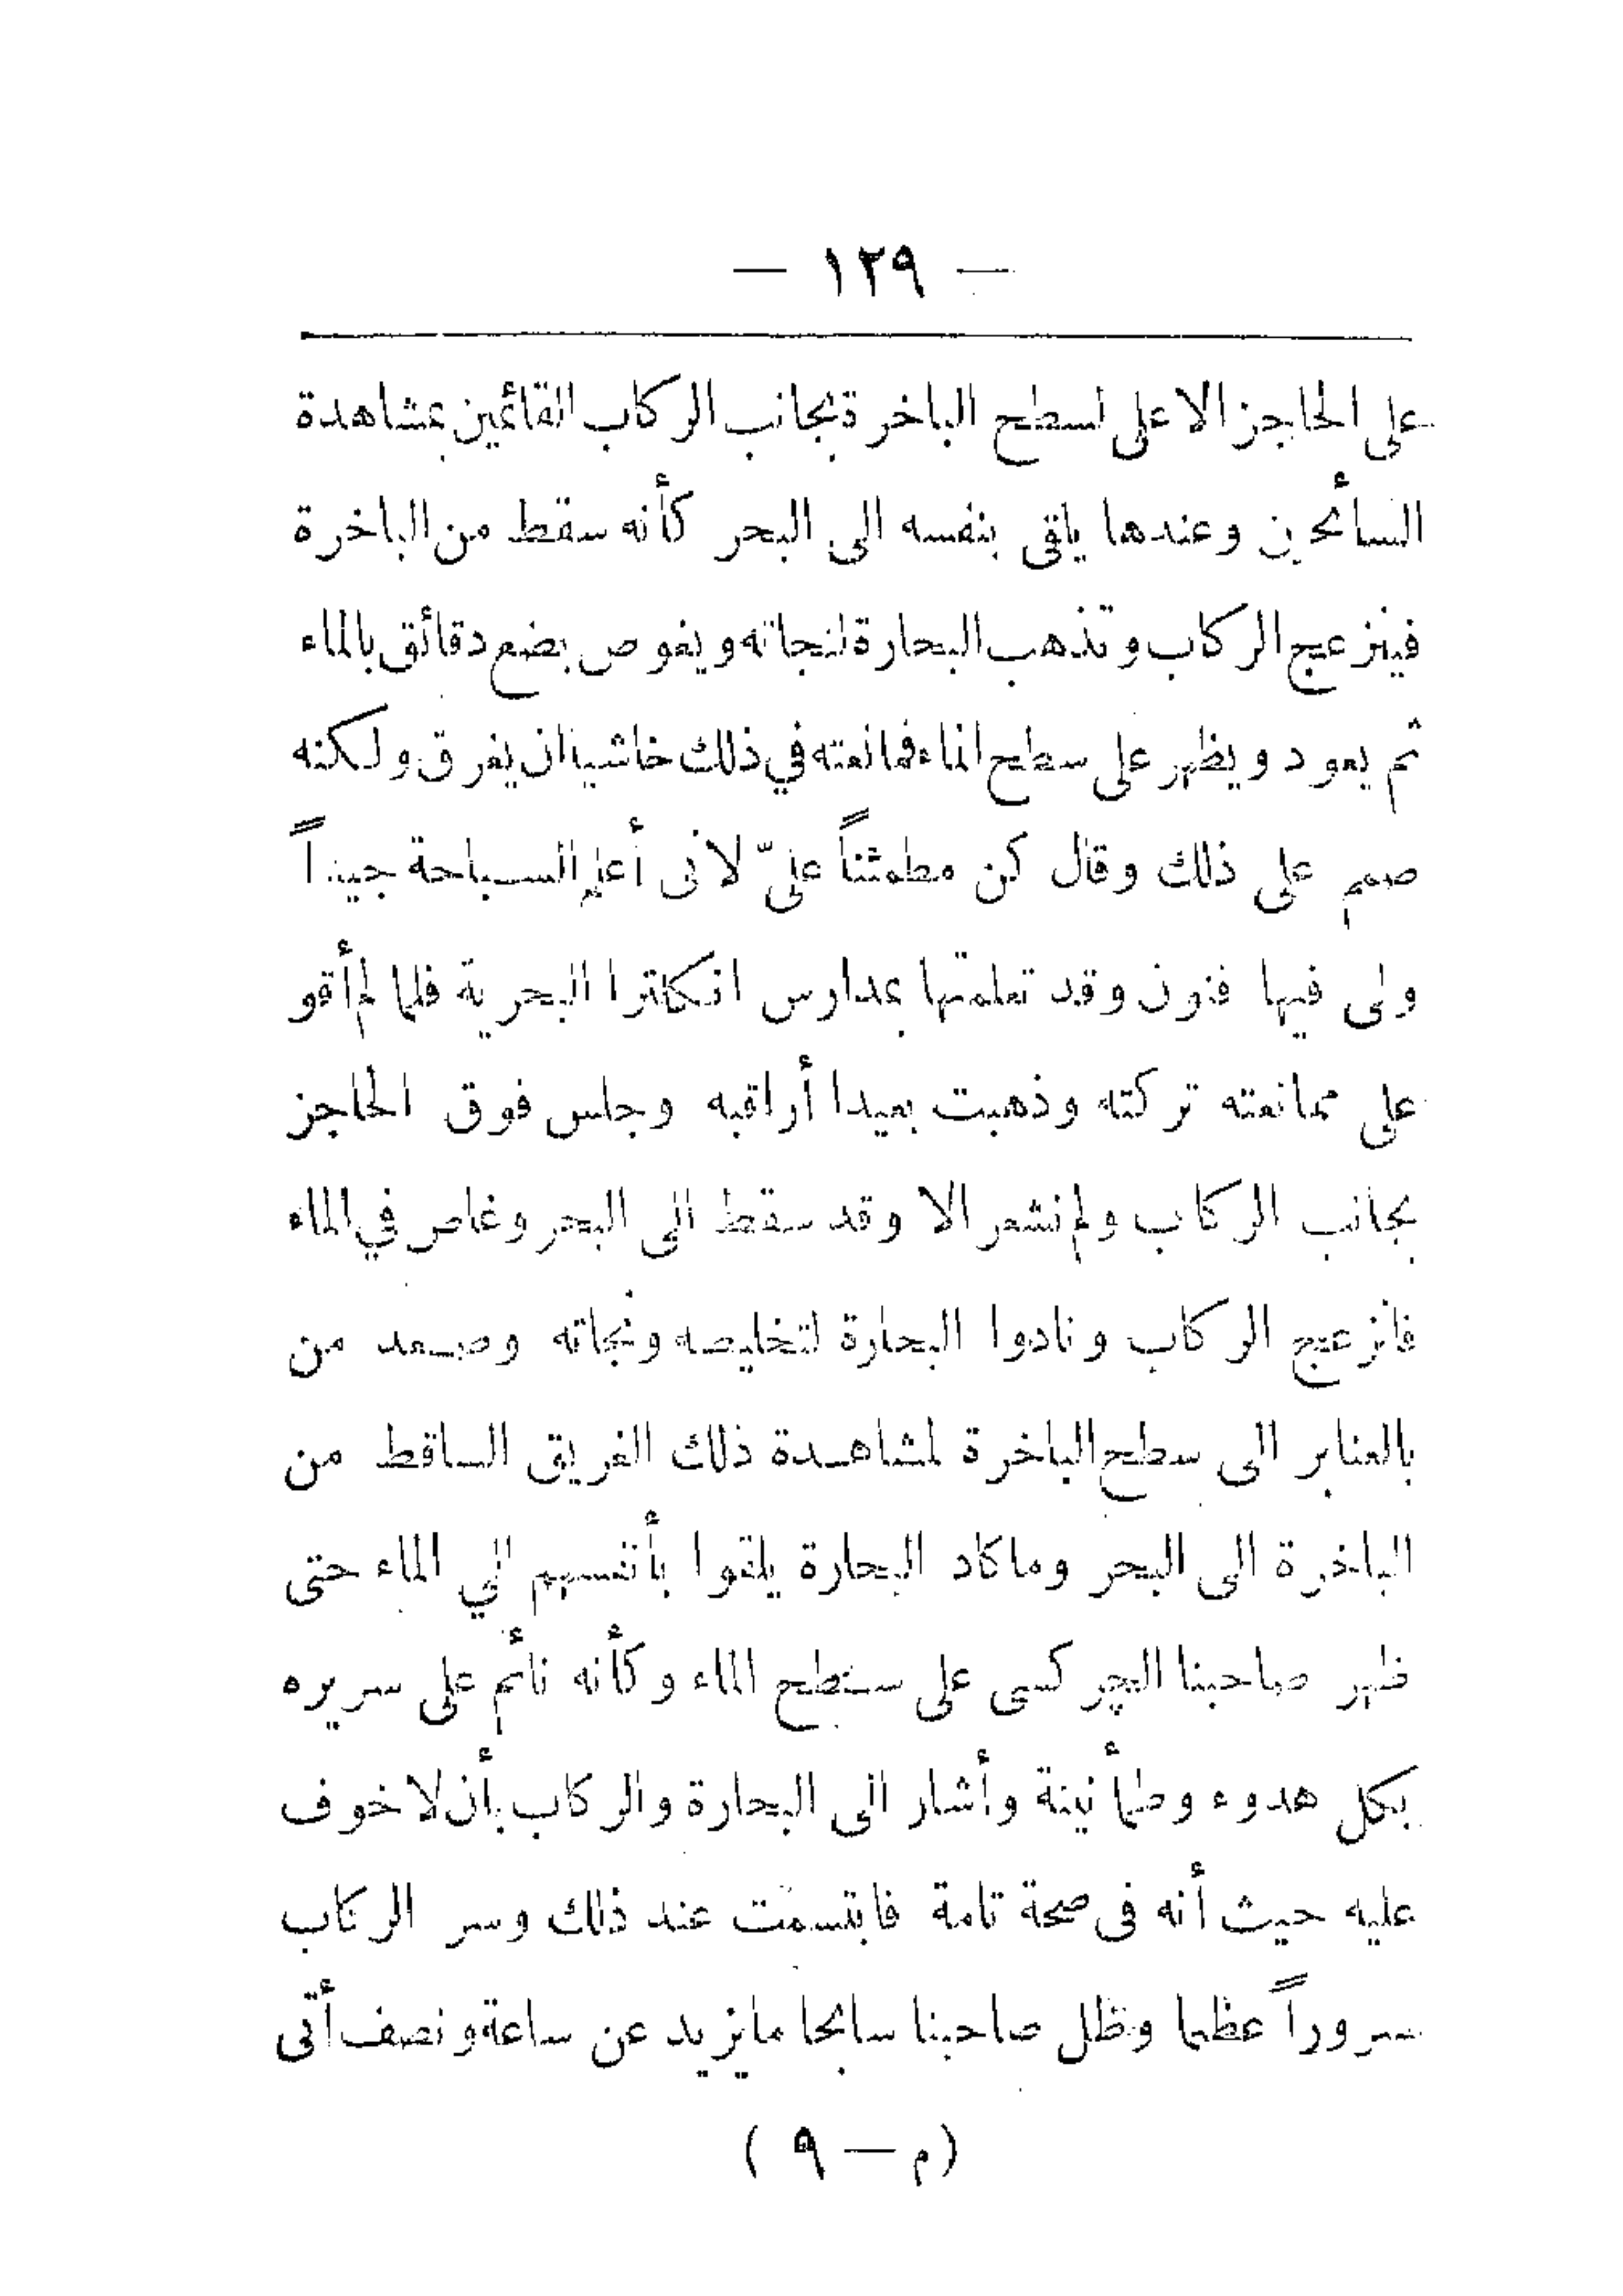 — ١٢٩ —
على الحاجز الاعلى لسطح الباخرة بجانب الركاب القائمين بمشاهدة
السأئحين وعندها يلقى بنفسه الى البحر كأنه سقط من الباخرة
فينزعج الركاب وتذهب البحارة لنجاته ويغوص بضع دقائق بالماء
ثم يعود ويظهر على سطح الماء فمانعته في ذلك خاشيا ان يغرق ولكنه
صمم على ذلك وقال كن مطمئناً علىّ لانى أعلم السباحة جيداً
ولى فيها فنون وقد تعلمتها بمدارس انكلترا البحرية فلما لم أقو
على ممانعته تركته وذهبت بعيدا أراقبه وجلس فوق الحاجز
بجانب الركاب ولم نشعر الا وقد سقط الى البحر وغاص في الماء
فانزعج الركاب ونادوا البحارة لتخليصه ونجاته وصعد من
بالعنابر الى سطح الباخرة لمشاهدة ذلك الغريق الساقط من
الباخرة الى البحر وماكاد البحارة يلقوا بأنفسهم الي الماء حتى
ظهر صاحبنا الچركسى على سطح الماء وكأنه نأئم على سريره
بكل هدوء وطمأنينة وأشار الى البحارة والركاب بأن لاخوف
عليه حيث أنه فى صحة تامة فابتسمت عند ذلك وسر الركاب
سروراً عظيما وظل صاحبنا سابحا مايزيد عن ساعة ونصف أتى
(م — ٩)